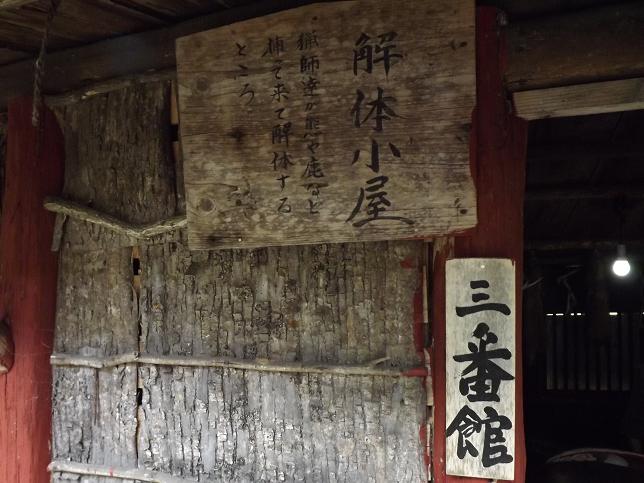 解体小屋
猟師達が熊や鹿など
捕って来て解体する
ところ
三番館